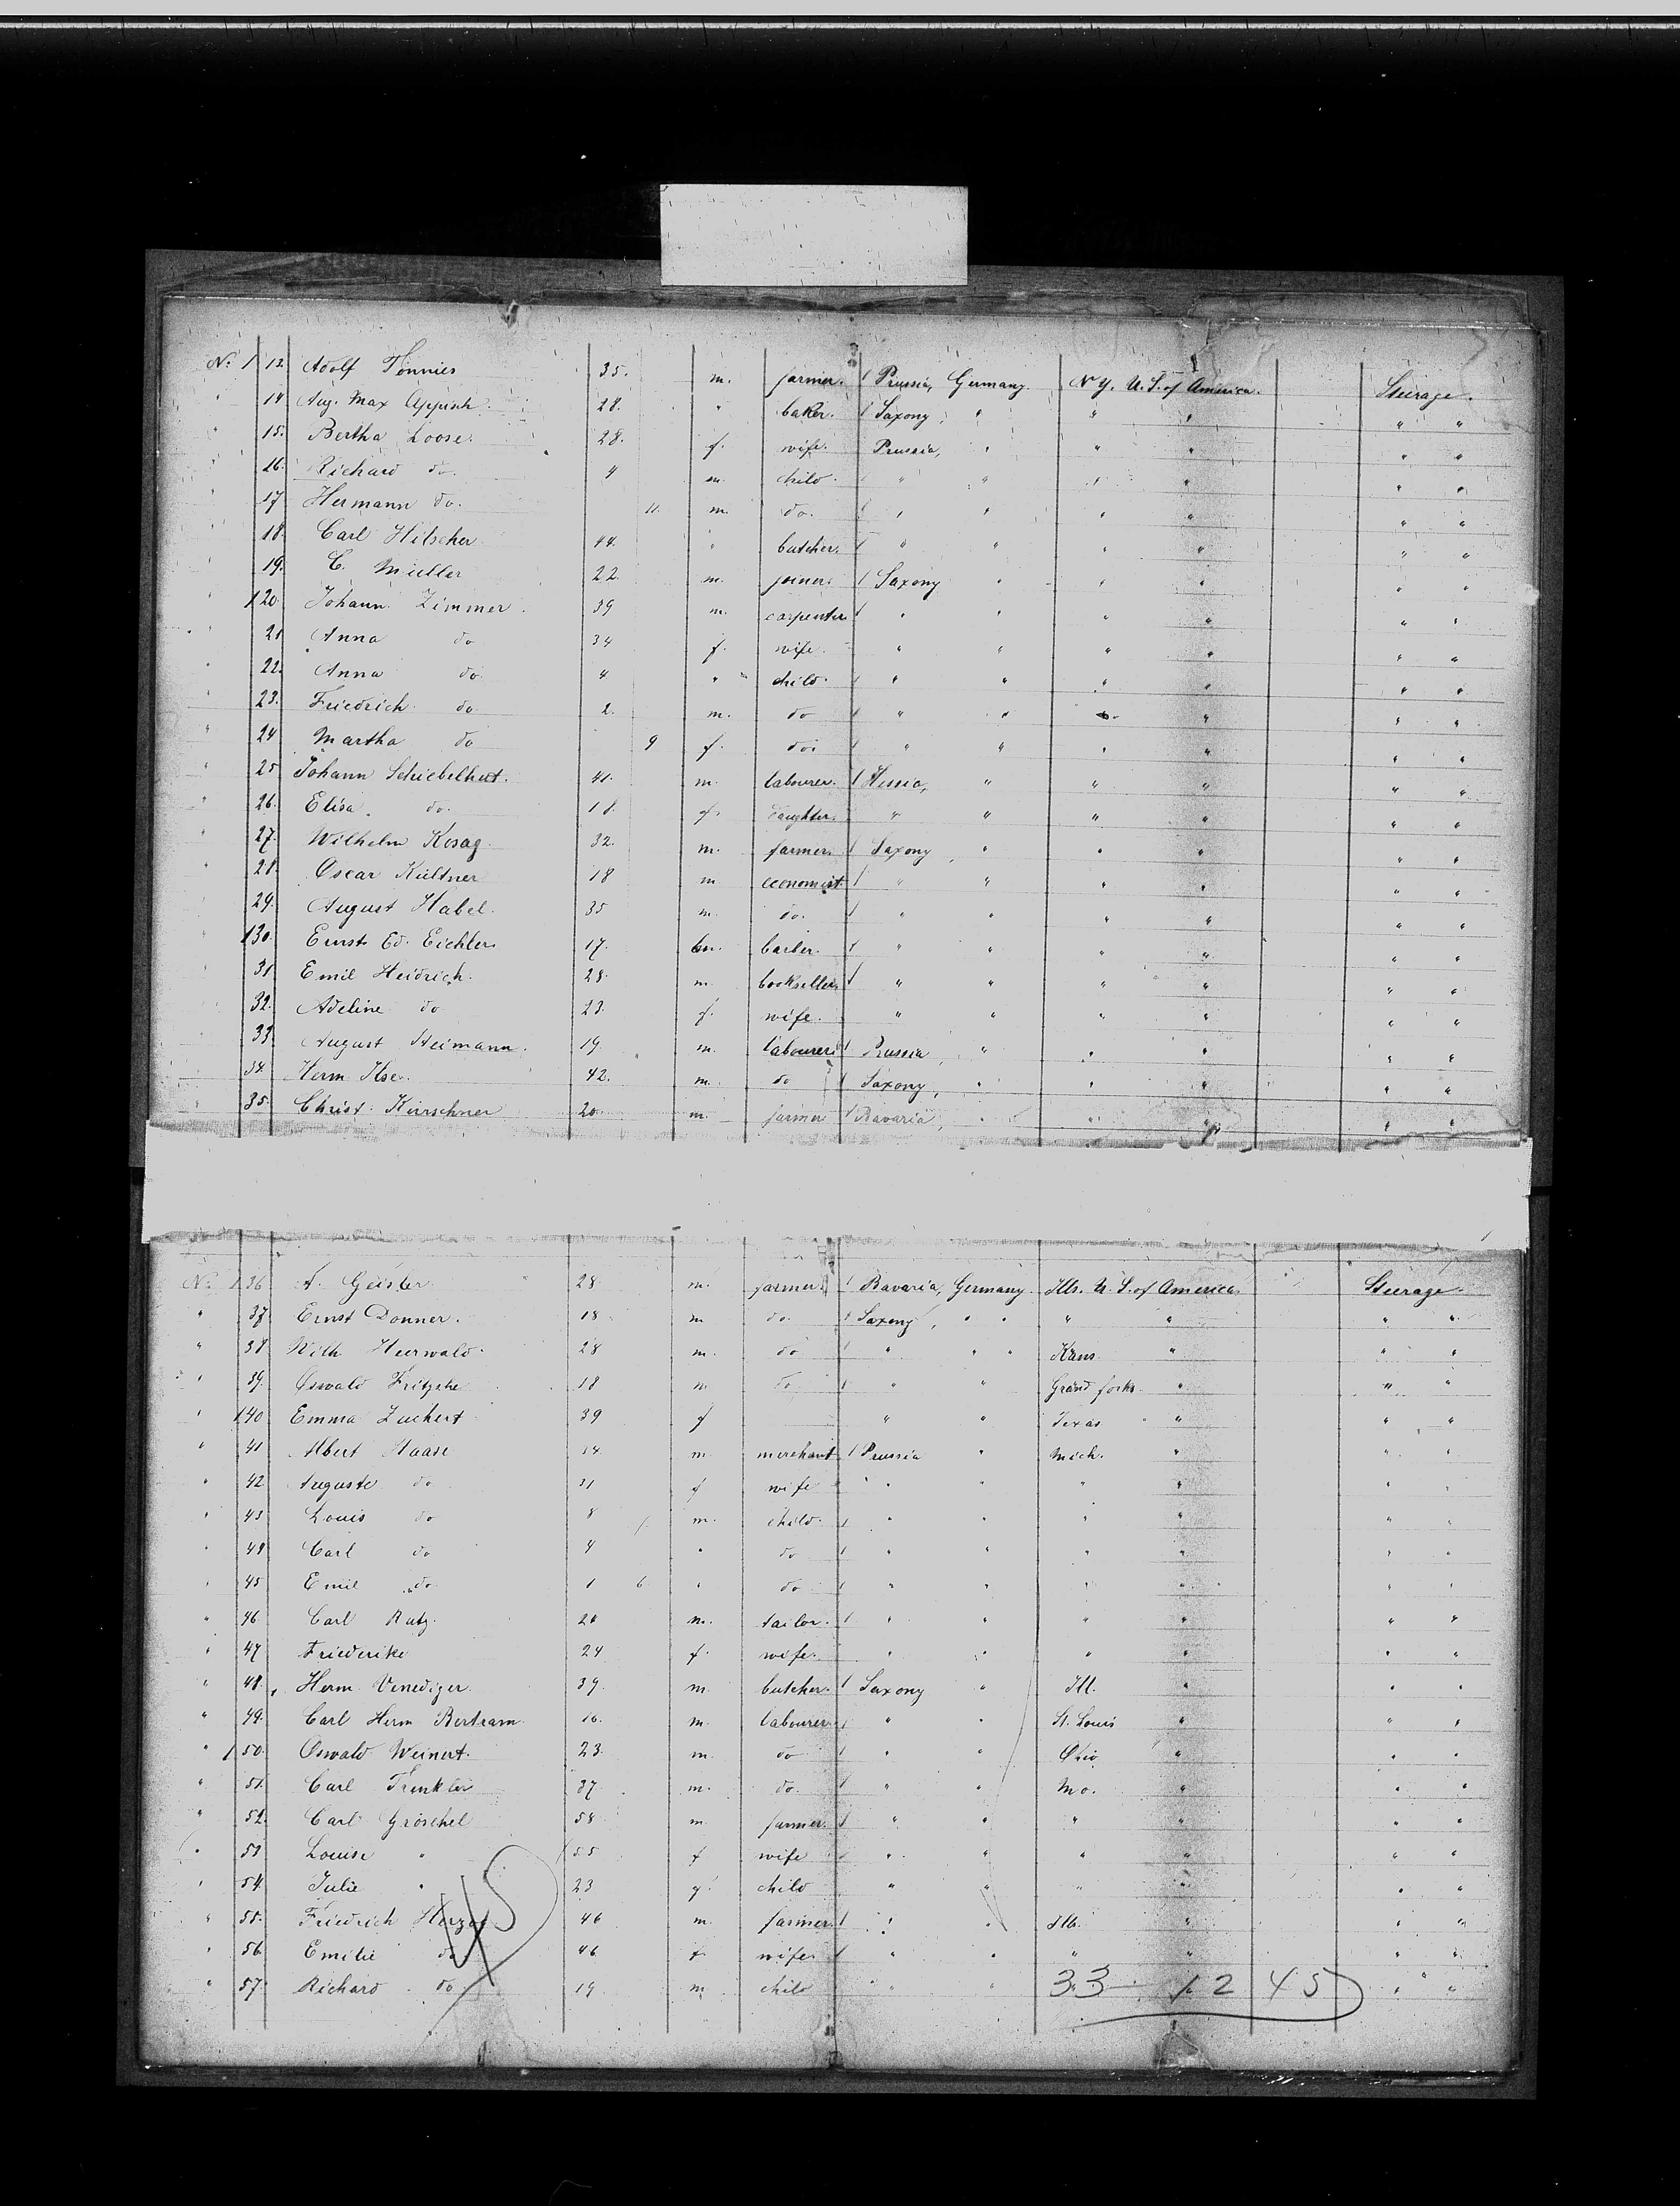 No. 1 13. Adolf Tönnies 35. m. farmer. / Prussia, Germany. N.Y. U.S. of America. Steerage.
" 14 Aug. Max Appisch 28. " baker. / Saxony, " " " " "
" 15. Bertha Loose. 28. f. wife. Prussia, " " " " "
" 16. Richard do. 4 m. child. " " " " " "
" 17 Hermann do. 11. m. do. " " " " " "
" 18. Carl Hilscher 44. " butcher. / " " " " " "
" 19. C. Müller 22. m. joiner. / Saxony " " " " "
" 120. Johann Zimmer. 39 m. carpenter / " " " " " "
" 21 Anna do 34 f. wife. " " " " " "
" 22. Anna do. 4 " child. " " " " " "
" 23. Friedrich do 2. m. do " " " " " "
" 24 Martha do 9 f. do. " " " " " "
" 25 Johann Schiebelhut. 41. m. labourer. / Hessia, " " " " "
" 26. Elisa do. 18. f. daughter. " " " " " "
" 27. Wilhelm Kosag. 32. m. farmer. / Saxony, " " " " "
" 28. Oscar Kültner 18 m economist. / " " " " " "
29. August Habel. 35 m. do. / " " " " " "
" 130. Ernst Ed. Eichler. 17. m. barber. / " " " " " "
" 31. Emil Heidrich. 28. m. bookseller / " " " " " "
32. Adeline do 23. f. wife. " " " " " "
33. August Heimann. 19. m. labourer. / Prussia, " " " " "
" 34. Herm Ilse. 42. m. do / Saxony, " " " " "
" 35. Christ. Kirschner 20. m. farmer / Bavaria, " " " " "
No. 136 A. Geisler 28 m. farmer. / Bavaria, Germany. Ills. U.S. of America Steerage.
" 37. Ernst Donner. 18. m do. / Saxony, " " " " "
" 38 Wilh Heerwald. 28 m. do / " " Kans. " " "
" 39. Oswald Fritzshe 18 m. do / " " Grand forks. " " "
" 140. Emma Zuchert 39 f " " Texas " " "
" 41 Albert Haase 14. m. merchant / Prussia " Mich. " " "
" 42 Auguste do 31 f wife " " " " " "
" 43 Louis do 8 m. child. / " " " " " "
" 44 Carl do 4 " do / " " " " " "
" 45 Emil do 1 6 " do / " " " " " "
" 46 Carl Ratz. 28 m. tailor. / " " " " " "
" 47 Friederike 24 f. wife. " " " " " "
" 48. Herm. Venediger. 39. m. butcher. / Saxony " Ill. " " "
" 49. Carl Herm Bertram 16. m. labourer / " " St. Louis " " "
" 150. Oswald Weinert. 23. m. do / " " Ohio " " "
" 51. Carl Trenkler 37 m. do. / " " Mo. " " "
" 52. Carl Gröschel 58 m. farmer. / " " " " " "
" 53 Louise " 55 f wife " " " " " "
" 54 Julie " 23 f. child " " " " " "
" 55. Friedrich Herzog 46 m. farmer / " " Ill. " " "
" 56. Emilie do. 46 f. wife / " " " " " "
" 57. Richard do 14 m. child " " " "
45
33 12 45